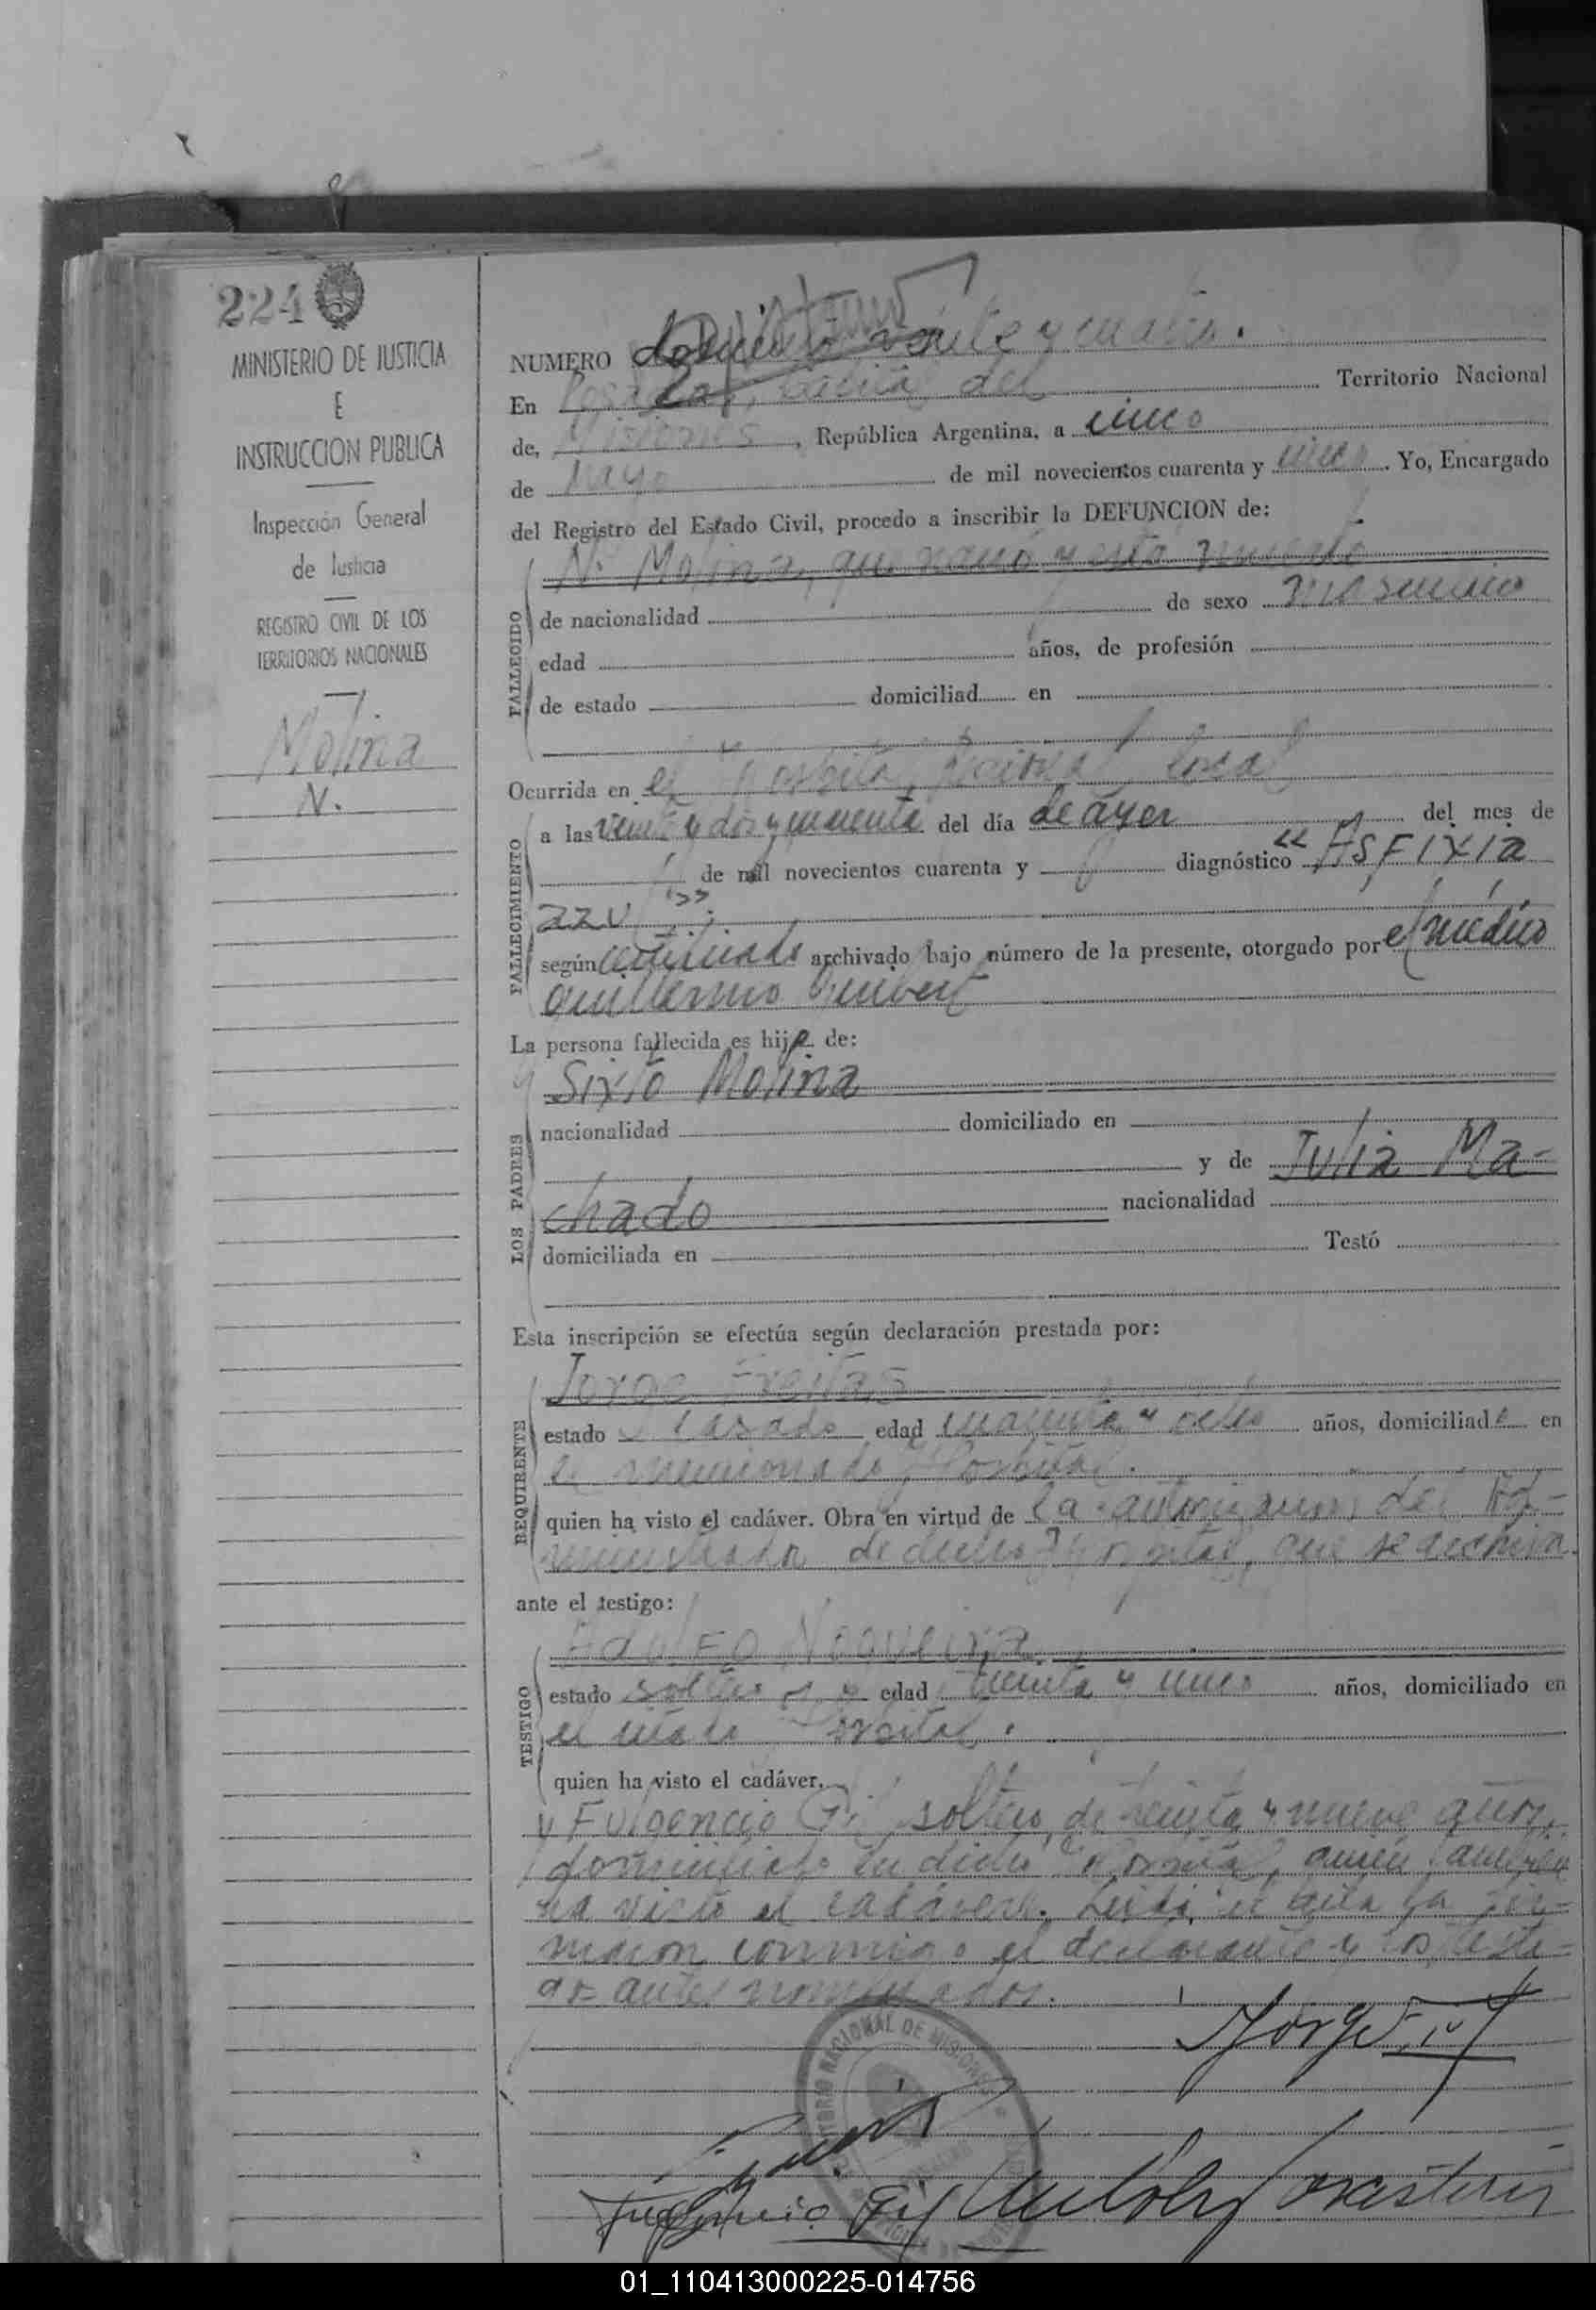 224
MINISTERIO DE JUSTICIA
E
INSTRUCCION PUBLICA
Inspección General
de Justicia
REGISTRO CIVIL DE LOS
TERRITORIOS NACIONALES
Molina
N.
NUMERO doscientos veinte y cuatro.
En Posadas, capital del Territorio Nacional
de, Misiones, República Argentina, a cinco
de Mayo de mil novecientos cuarenta y cinco. Yo, Encargado
del Registro del Estado Civil, procedo a inscribir la DEFUNCION de:
FALLECIDO
N. Molina, que nació y está muerto
de nacionalidad de sexo masculino
edad años, de profesión
de estado domiciliad en
Ocurrida en el Hospital Regional local
FALLECIMIENTO
a las veinte y dos y cuarenta del día de ayer del mes de
de mil novecientos cuarenta y diagnóstico "ASFIXIA
azul";
según certificado archivado bajo número de la presente, otorgado por el médico
Guillermo
La persona fallecida es hijo de:
LOS PADRES
Sixto Molina
nacionalidad domiciliado en
y de Julia Ma-
chado nacionalidad
domiciliada en Testó
Esta inscripción se efectúa según declaración prestada por:
REQUIRENTE
Jorge Freitas
estado casado edad cuarenta y ocho años, domiciliado en
el mencionado Hospital.
quien ha visto el cadáver. Obra en virtud de la autorización del Ad-
ministrador de dicho Hospital, que se archiva.
ante el testigo:
TESTIGO
Adolfo Nogueira
estado soltero edad treinta y cinco años, domiciliado en
el citado Hospital.
quien ha visto el cadáver.
y Fulgencio Gil, soltero, de treinta y nueve años,
domiciliado en dicho Hospital, quien también
ha visto el cadáver. Leída el acta la fir-
maron conmigo el declarante y los testi-
gos antes nombrados.
Jorge
Fulgencio Gil
01_110413000225-014756